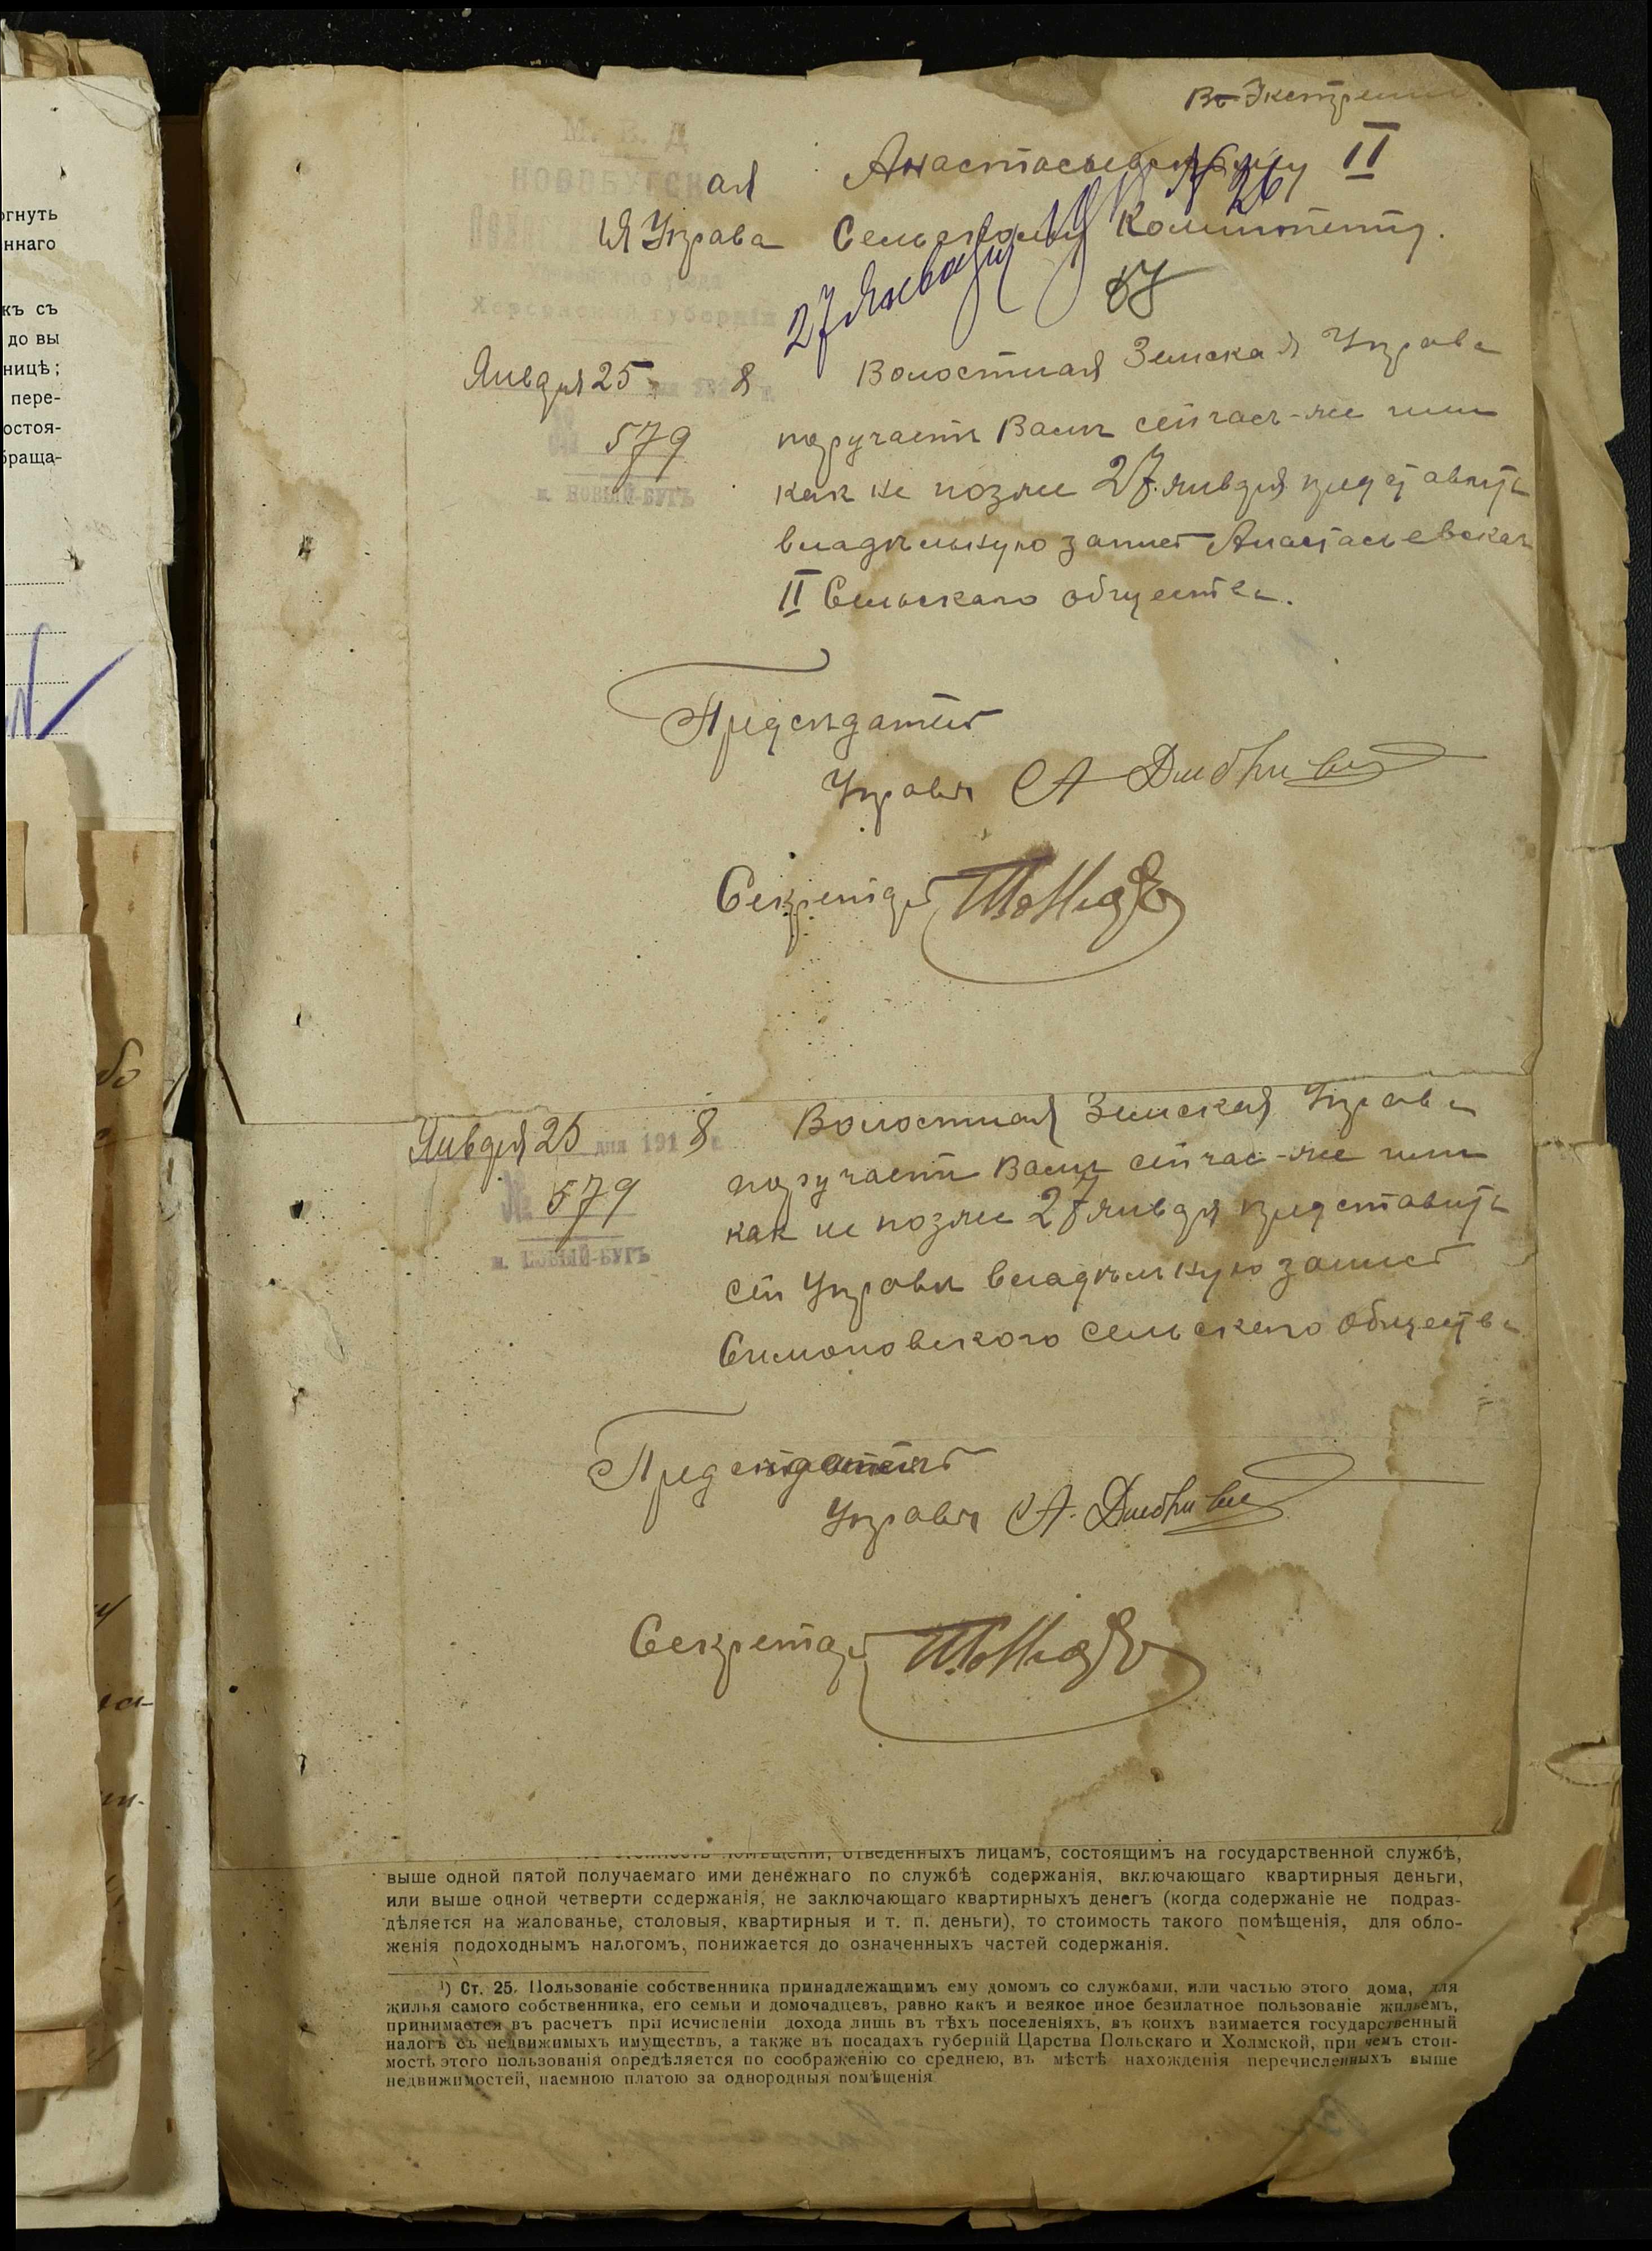 огнуть
ннаго
къ съ
до вы
ницѣ;
пере-
остоя-
браща-
Въ Экстренн
М. В. Д
НОВОБУГСКая
Анастасьевскому II
я Управа
Сельскому Комитету.
Херсонской губерніи
27 Января
№ 26
Января 25 8
579
м. НОВЫЙ-БУГЪ
Волостная Земская Управа
поручаетъ Вамъ сейчасъ-же или
какъ не позже 27 января представить
владѣльную запись Анастасьевскаго
II Сельскаго общества.
Предсѣдатель
Управы А
Секретарь
Января 25 дня 1918 г.
№ 579
м. НОВЫЙ-БУГЪ
Волостная Земская Управа
поручаетъ Вамъ сейчас-же или
как не позже 27 января представить
сей Управы владѣльную запись
Симоновского сельского общества
Предсѣдатель
Управы А.
Секретарь
помѣщеній, отведенныхъ лицамъ, состоящимъ на государственной службѣ,
выше одной пятой получаемаго ими денежнаго по службѣ содержанія, включающаго квартирныя деньги,
или выше одной четверти содержанія, не заключающаго квартирныхъ денегъ (когда содержаніе не подраз-
дѣляется на жалованье, столовыя, квартирныя и т. п. деньги), то стоимость такого помѣщенія, для обло-
женія подоходнымъ налогомъ, понижается до означенныхъ частей содержанія.
¹) Ст. 25. Пользованіе собственника принадлежащимъ ему домомъ со службами, или частью этого дома, для
жилья самого собственника, его семьи и домочадцевъ, равно какъ и всякое иное безплатное пользованіе жильемъ,
принимается въ расчетъ при исчисленіи дохода лишь въ тѣхъ поселеніяхъ, въ коихъ взимается государственный
налогъ съ недвижимыхъ имуществъ, а также въ посадахъ губерній Царства Польскаго и Холмской, при чемъ стои-
мость этого пользованія опредѣляется по соображенію со среднею, въ мѣстѣ нахожденія перечисленныхъ выше
недвижимостей, наемною платою за однородныя помѣщенія